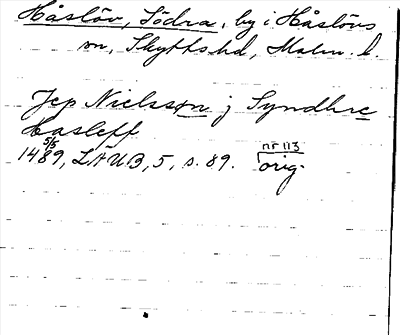 Håslöv, Södra, by i Håslövs
sn, Skytts hd, Malm. l.
Jep Nielssøn j Syndhre
hasleff
5/5
1489, LÄUB, 5, s. 89. nr 113
orig.